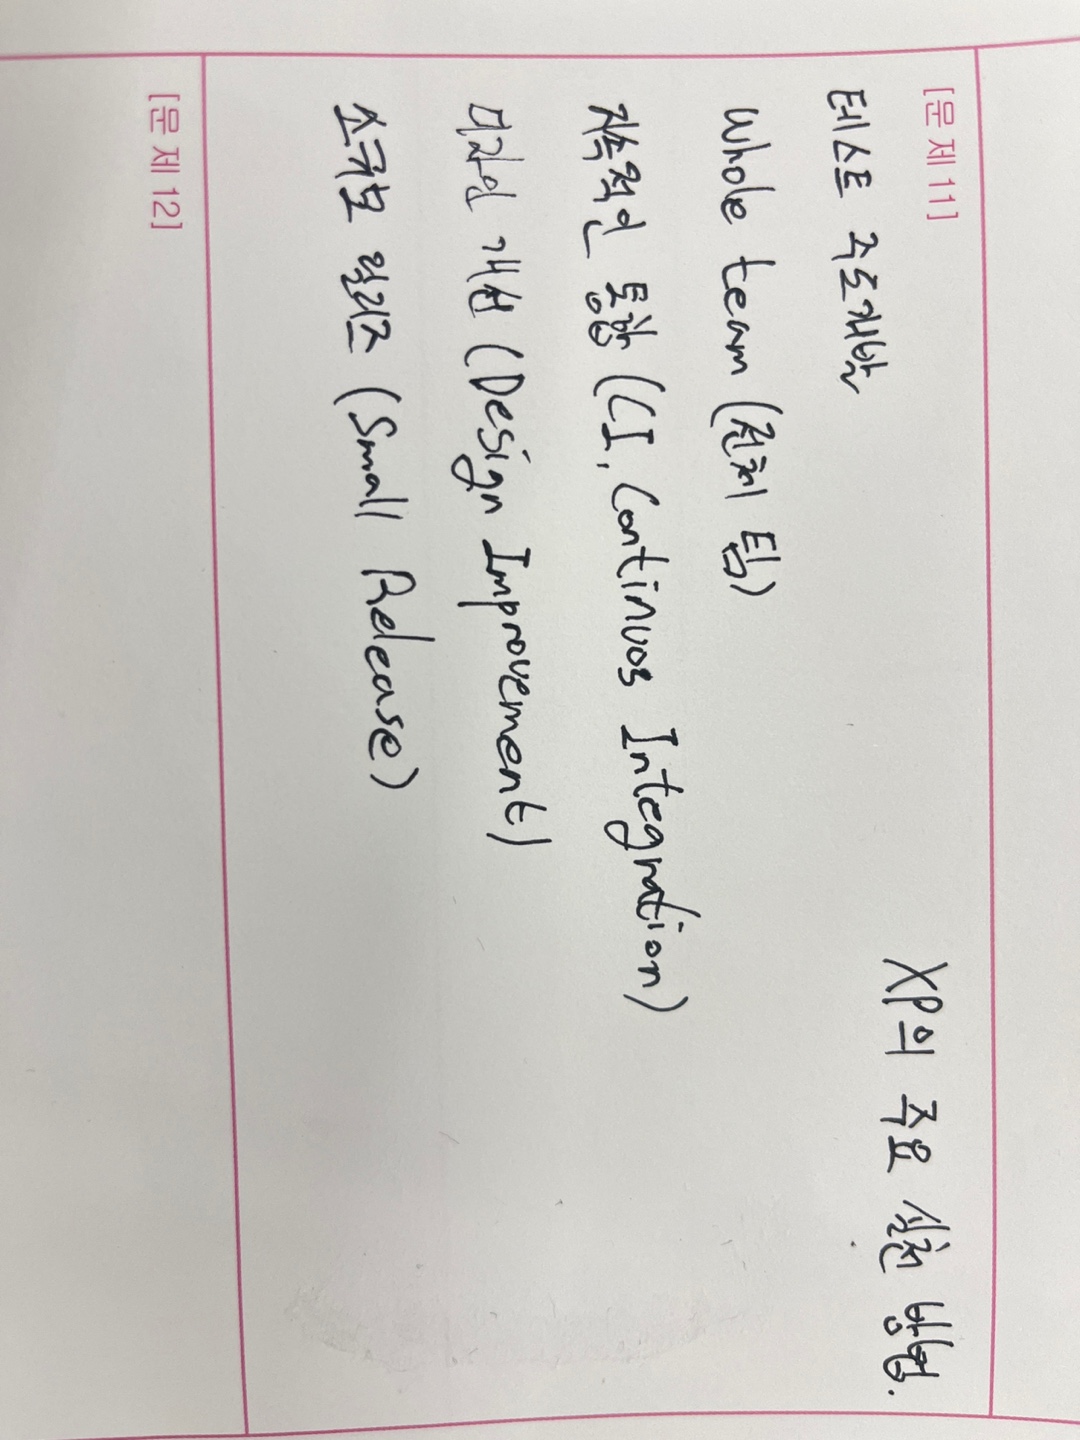 [문 제 11]
XP의 주요 실천 방법.
테스트 주도개발
Whole team (전체 팀)
지속적인 통합 (CI, Continuos Integration)
디자인 개선 (Design Improvement)
소규모 릴리즈 (Small Release)
[문 제 12]